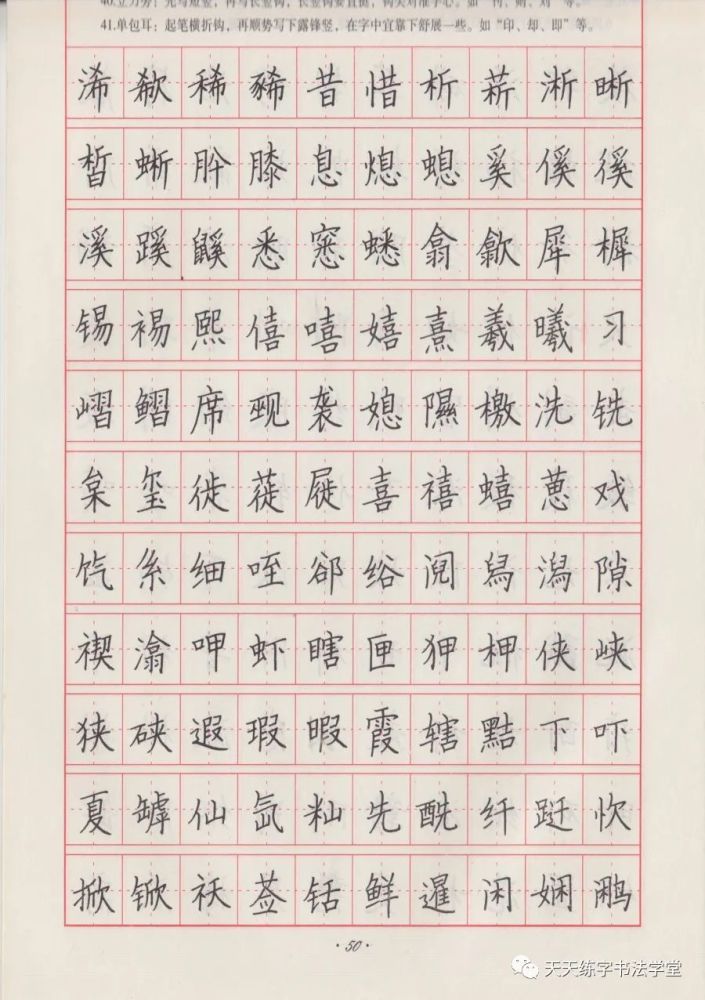 40.立刀旁：先写短竖，再写长竖钩，长竖钩要直挺，钩尖对准字心。如“刊、则、刘”等。
41.单包耳：起笔横折钩，再顺势写下露锋竖，在字中宜靠下舒展一些。如“印、却、即”等。
浠 欷 稀 豨 昔 惜 析 菥 淅 晰
皙 蜥 肸 膝 息 熄 螅 奚 傒 徯
溪 蹊 鼷 悉 窸 蟋 翕 歙 犀 樨
锡 裼 熙 僖 嘻 嬉 熹 羲 曦 习
嶍 鳛 席 觋 袭 媳 隰 檄 洗 铣
枲 玺 徙 蓰 屣 喜 禧 蟢 葸 戏
饩 系 细 咥 郤 绤 阋 舄 潟 隙
禊 滃 呷 虾 瞎 匣 狎 柙 侠 峡
狭 硖 遐 瑕 暇 霞 辖 黠 下 吓
夏 罅 仙 氙 籼 先 酰 纤 跹 忺
掀 锨 祆 莶 铦 鲜 暹 闲 娴 鹇
·50·
天天练字书法学堂